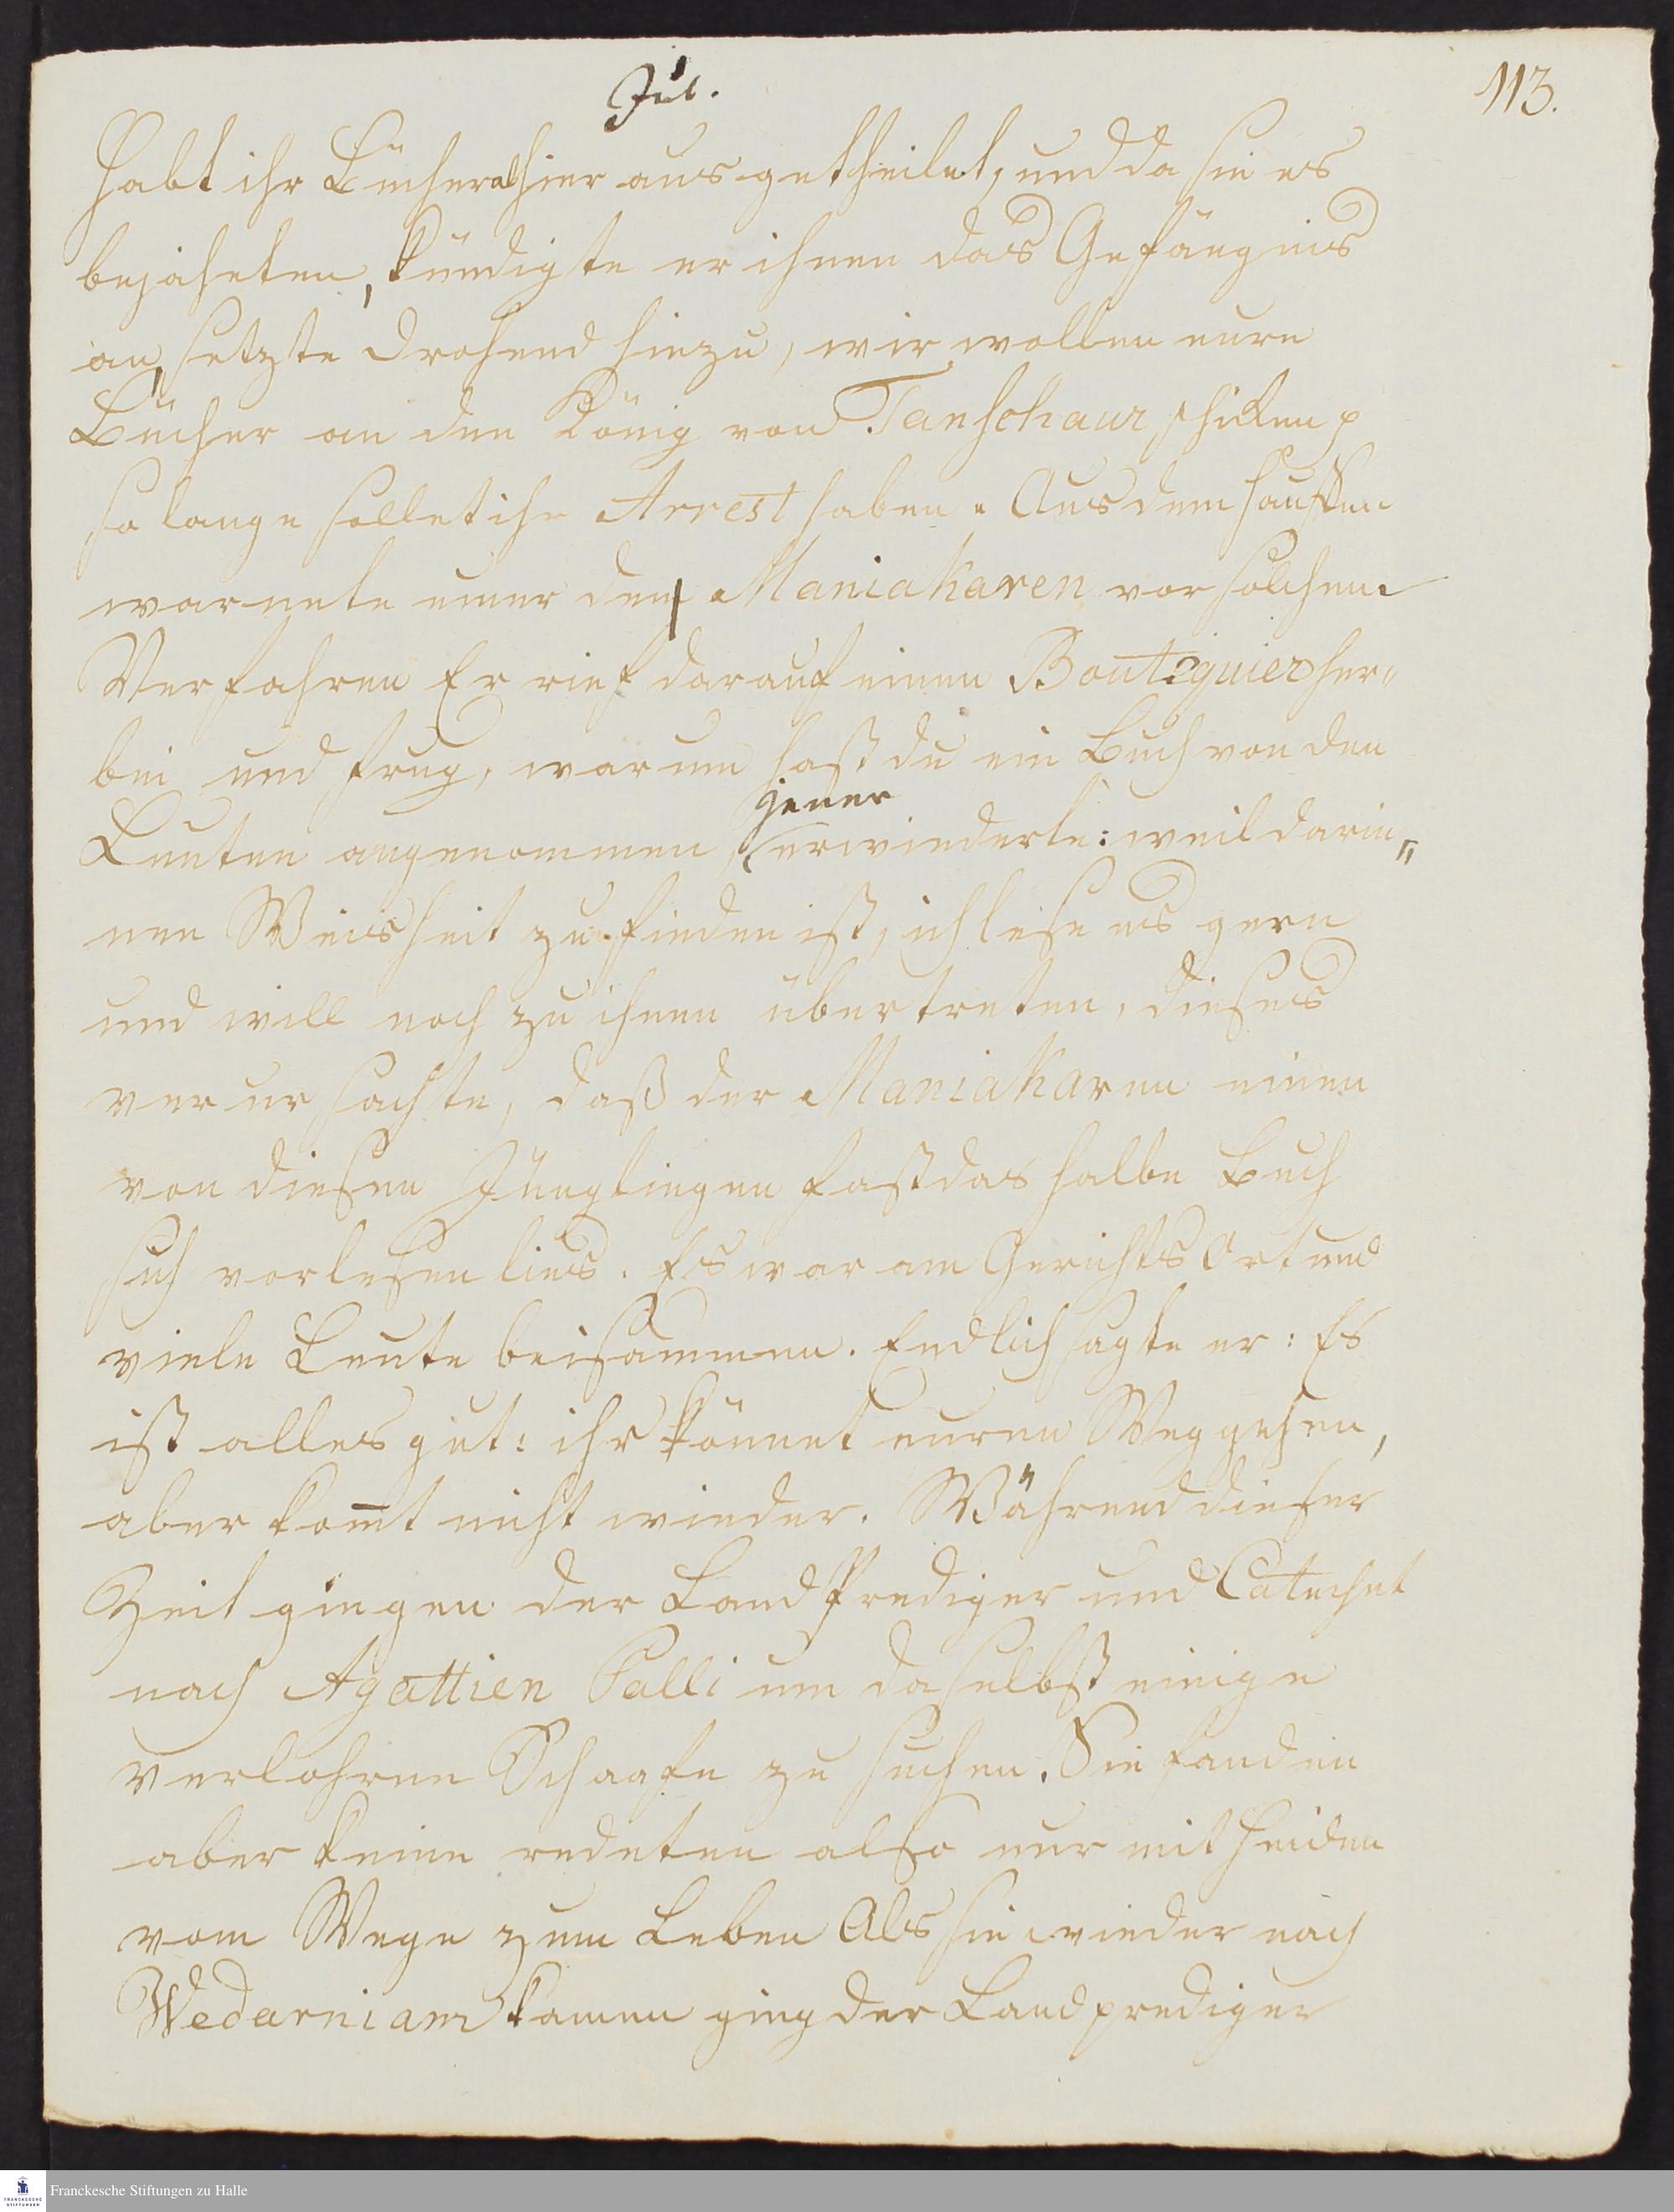 Jul.
113.
habt ihr Bücher alhier ausgetheilet, und da sie es
bejaheten, kündigte er ihnen das Gefängnis
an, setzte drohend hinzu, wir wollen eure
Bücher an den König von Tanschaur schicken p
so lange sollet ihr Arrest haben. Aus dem Hauffen
warnete einer den Maniakaren vor solchem
Verfahren Er rief darauf einen Boutiquier her„
bei und frug, warum hast du ein Buch von den
jener
Leuten angenommen, erwiederte: weil darin„
nen Weisheit zu finden ist, ich lese es gern
und will noch zu ihnen übertreten, dieses
verursachte, daß der Maniakaren einen
von diesen Jünglingen fast das halbe Buch
sich vorlesen lies. Es war am Gerichts Ort und
viele Leute beisammen. Endlich sagte er: Es
ist alles gut: ihr könnet euren Weg gehen,
aber komt nicht wieder. Während dieser
Zeit giengen der Land Prediger und Catechet
nach Agattien Palli um daselbst einige
verlohrne Schaafe zu suchen. Sie fanden
aber keine redeten also nur mit Heiden
vom Wege zum Leben Als sie wieder nach
Wedarniam kamen ging der Landprediger
Franckesche Stiftungen zu Halle